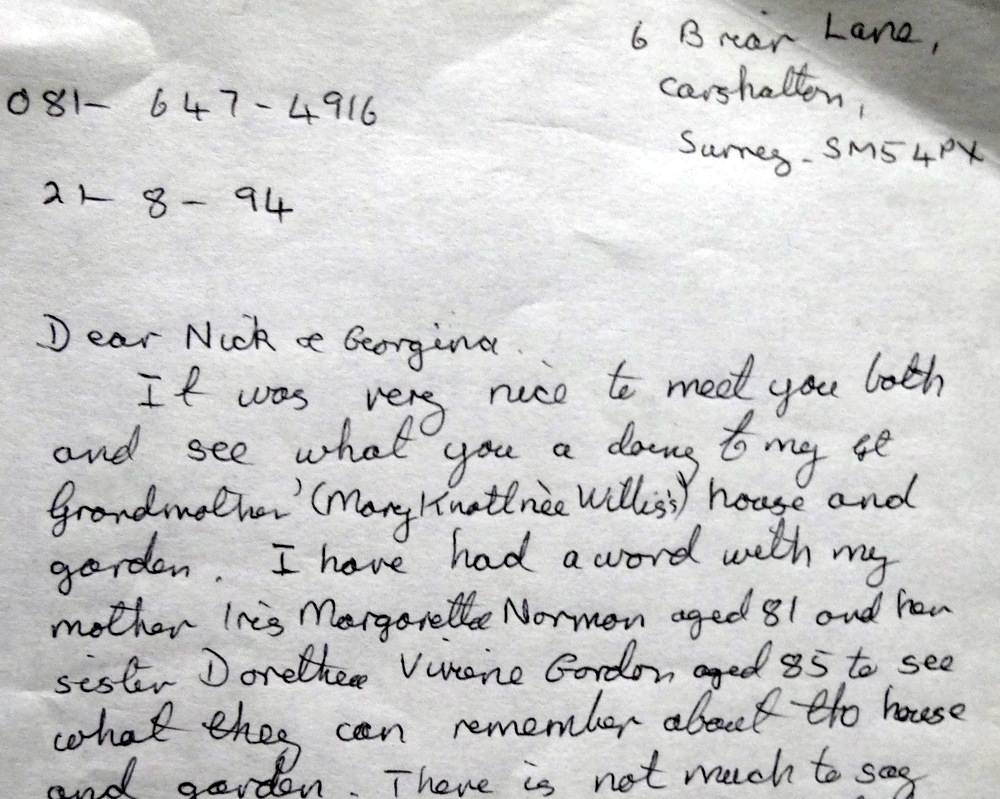 6 Briar Lane,
Carshalton,
Surrey - SM5 4PX
081- 647-4916
21- 8 - 94
Dear Nick & Georgina.
It was very nice to meet you both
and see what you a doing to my gt
Grandmother' (Mary Knott née Willis's) house and
garden. I have had a word with my
mother Iris Margaretta Norman aged 81 and her
sister Dorethea Viviene Gordon aged 85 to see
what they can remember about the house
and garden. There is not much to say